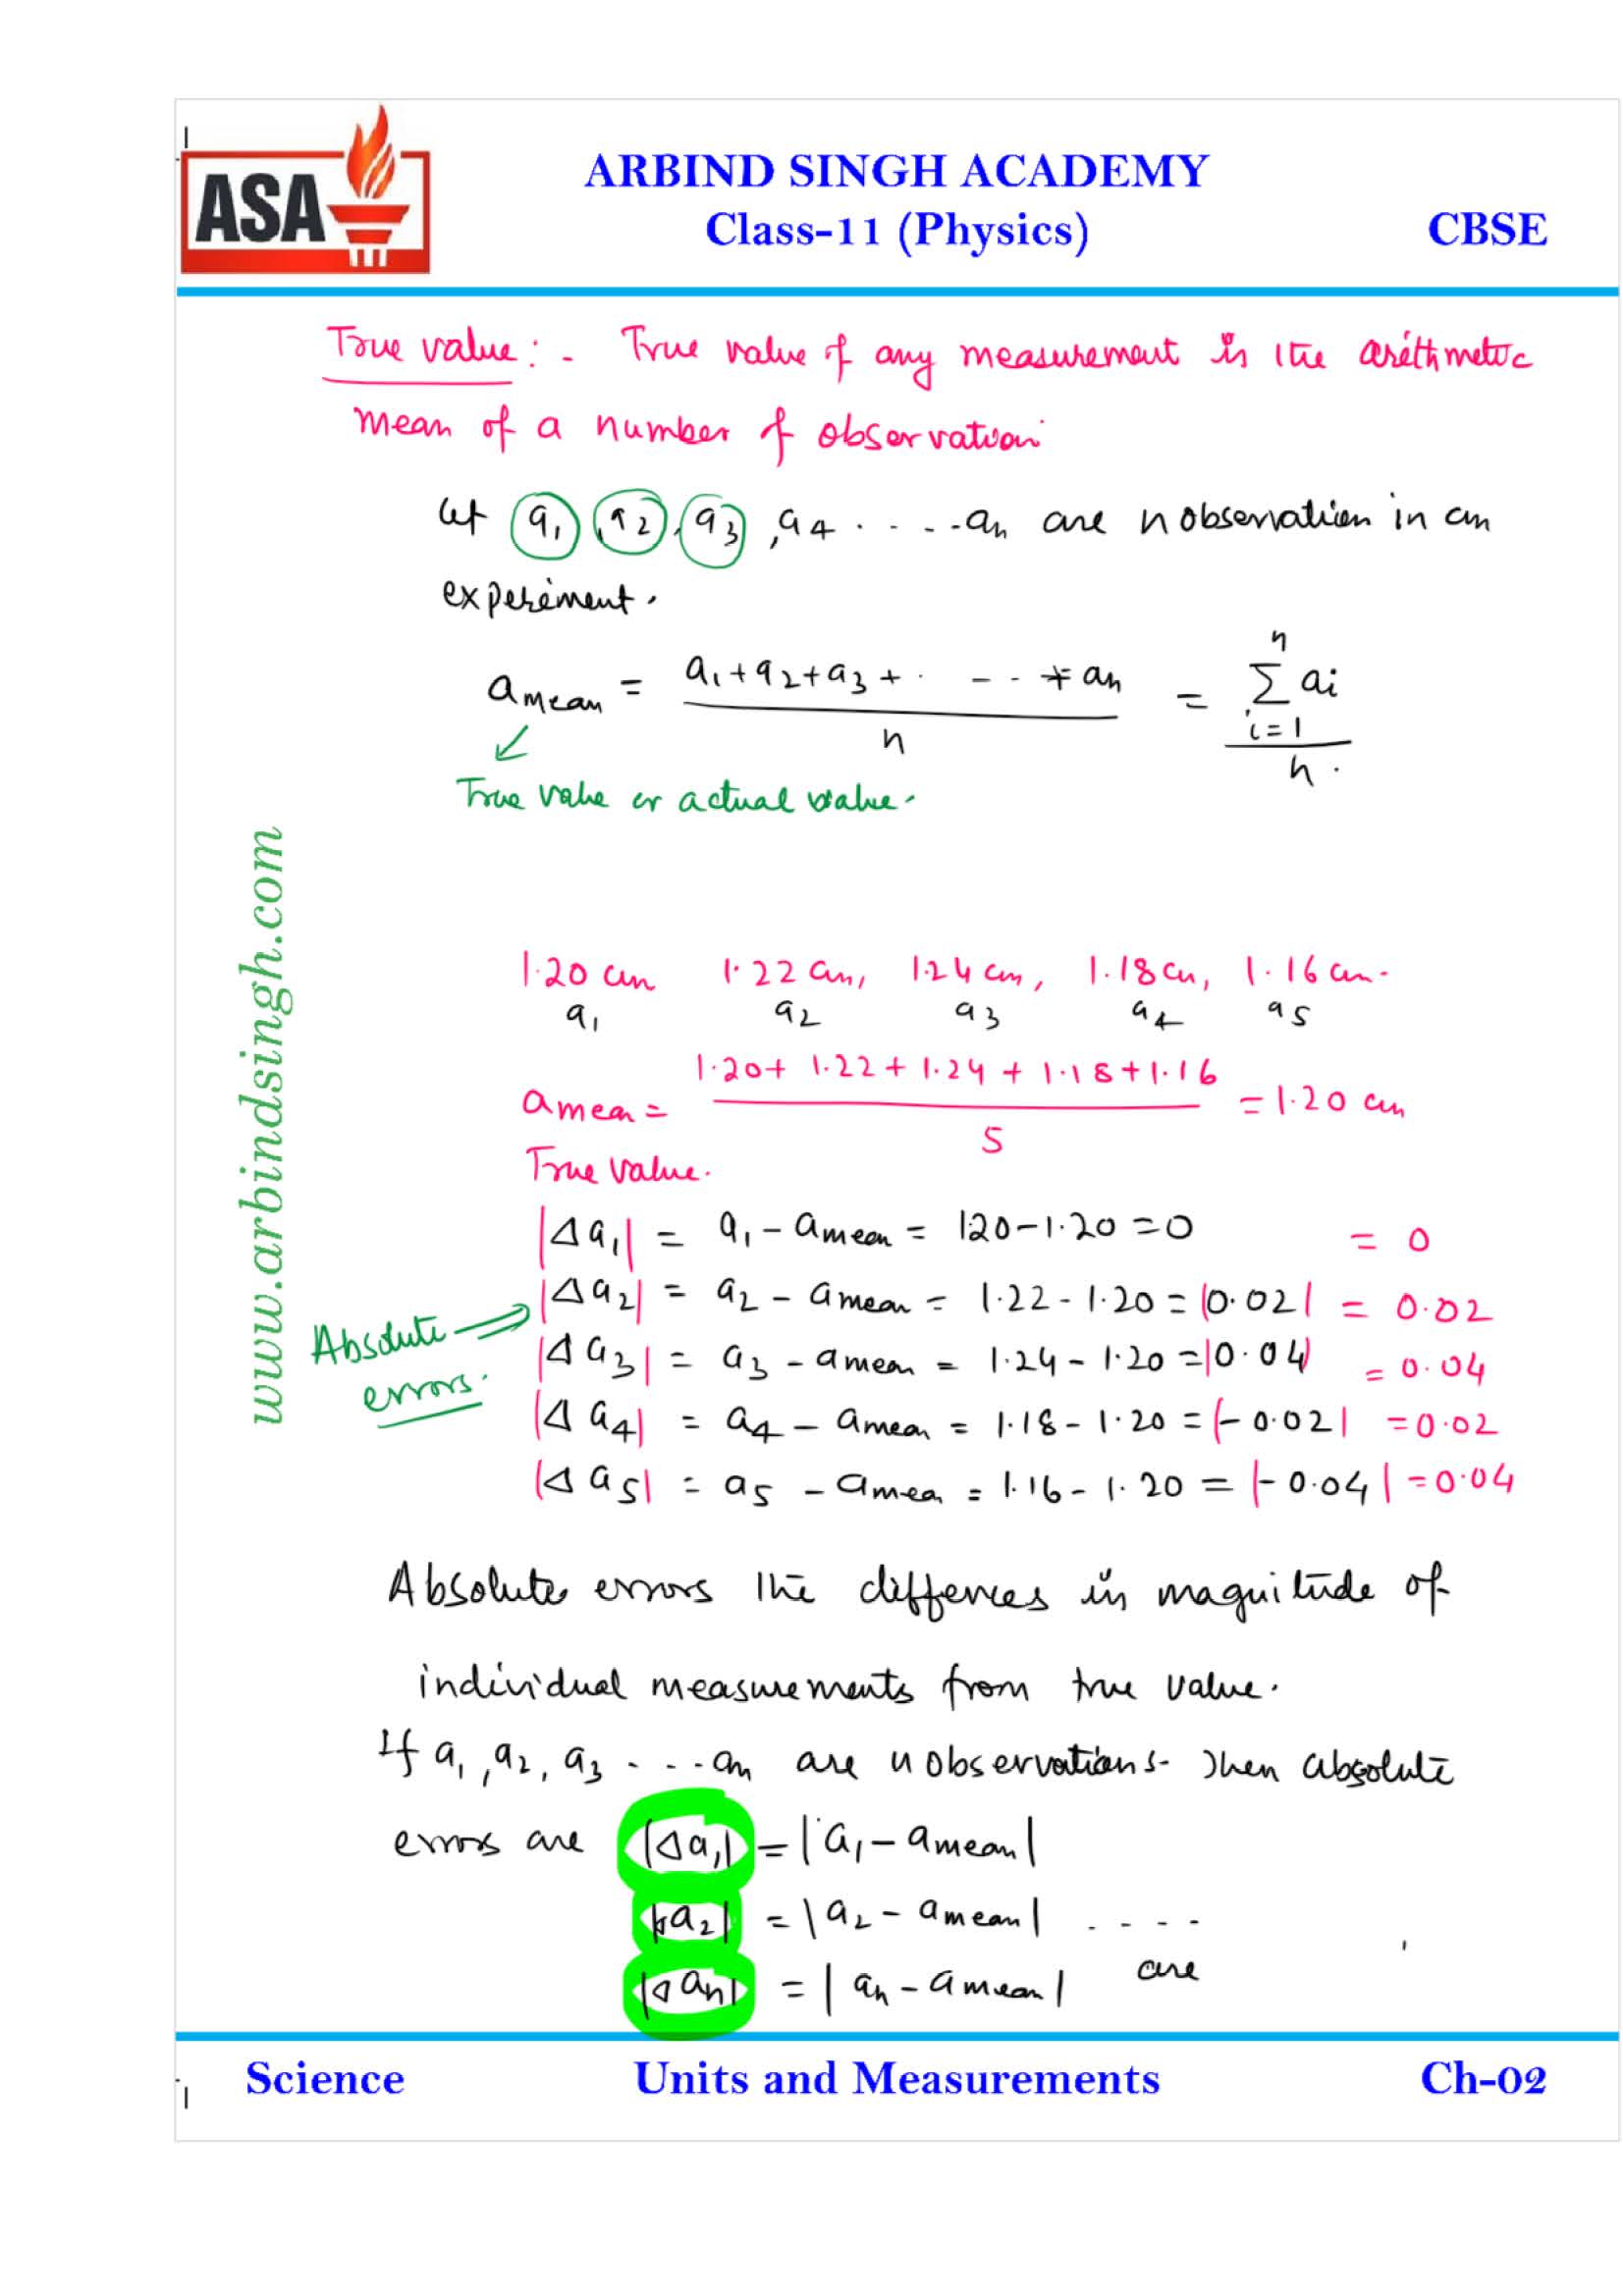 ASA
ARBIND SINGH ACADEMY
Class-11 (Physics)
CBSE
True value :- True value of any measurement is the arithmetic
mean of a number of observation
let a1, a2, a3, a4 . . . . . an are n observation in an
experiment.
amean = a1+a2+a3+ . - - . + an / n = n Σ i=1 ai / n.
True value or actual value.
www.arbindsingh.com
1.20 cm 1.22 cm, 1.24 cm, 1.18 cm, 1.16 cm.
a1 a2 a3 a4 a5
amean = 1.20+ 1.22+1.24 + 1.18+1.16 / 5 = 1.20 cm
True value.
|Δa1| = a1 - amean = 1.20-1.20 = 0 = 0
|Δa2| = a2 - amean = 1.22-1.20 = |0.02| = 0.02
Absolute errors.
|Δa3| = a3 - amean = 1.24-1.20 = |0.04| = 0.04
|Δa4| = a4 - amean = 1.18-1.20 = |-0.02| = 0.02
|Δa5| = a5 - amean = 1.16-1.20 = |-0.04| = 0.04
Absolute errors the differences in magnitude of
individual measurements from true value.
If a1, a2, a3 . - - an are n observations. Then absolute
errors are |Δa1| = |a1 - amean|
|Δa2| = |a2 - amean| - - - -
|Δan| = |an - amean| are
Science
Units and Measurements
Ch-02